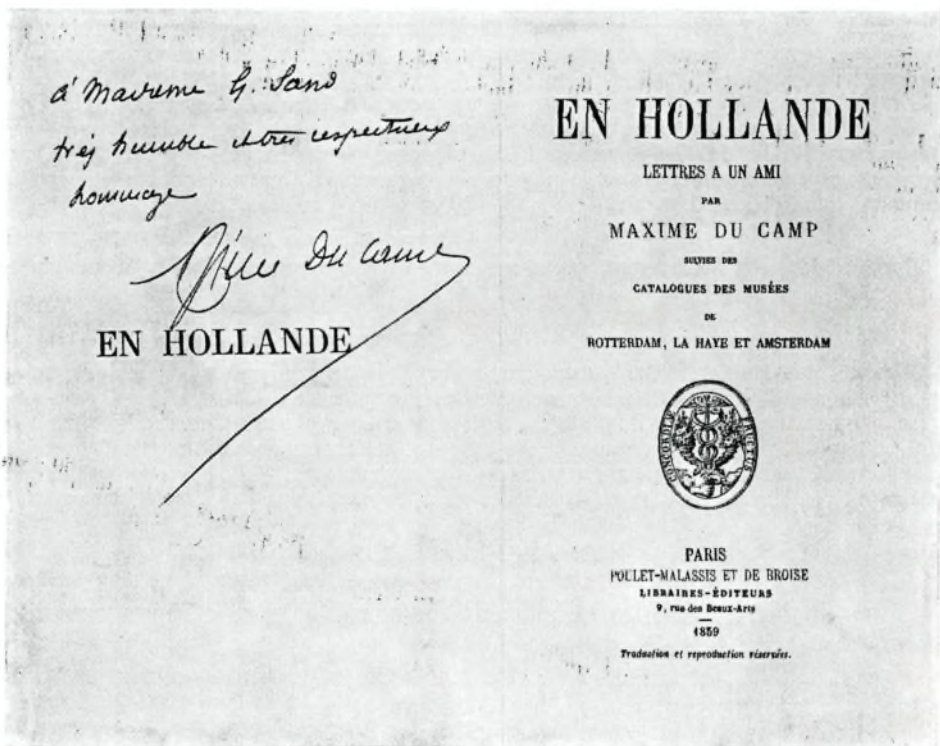 à Madame G. Sand
très humble et très respectueux
hommage
Maxime Du Camp
EN HOLLANDE
EN HOLLANDE
LETTRES A UN AMI
PAR
MAXIME DU CAMP
SUIVIES DES
CATALOGUES DES MUSÉES
DE
ROTTERDAM, LA HAYE ET AMSTERDAM
CONCORDIÆ FRUCTUS
PARIS
POULET-MALASSIS ET DE BROISE
LIBRAIRES-ÉDITEURS
9, rue des Beaux-Arts
1859
Traduction et reproduction réservées.